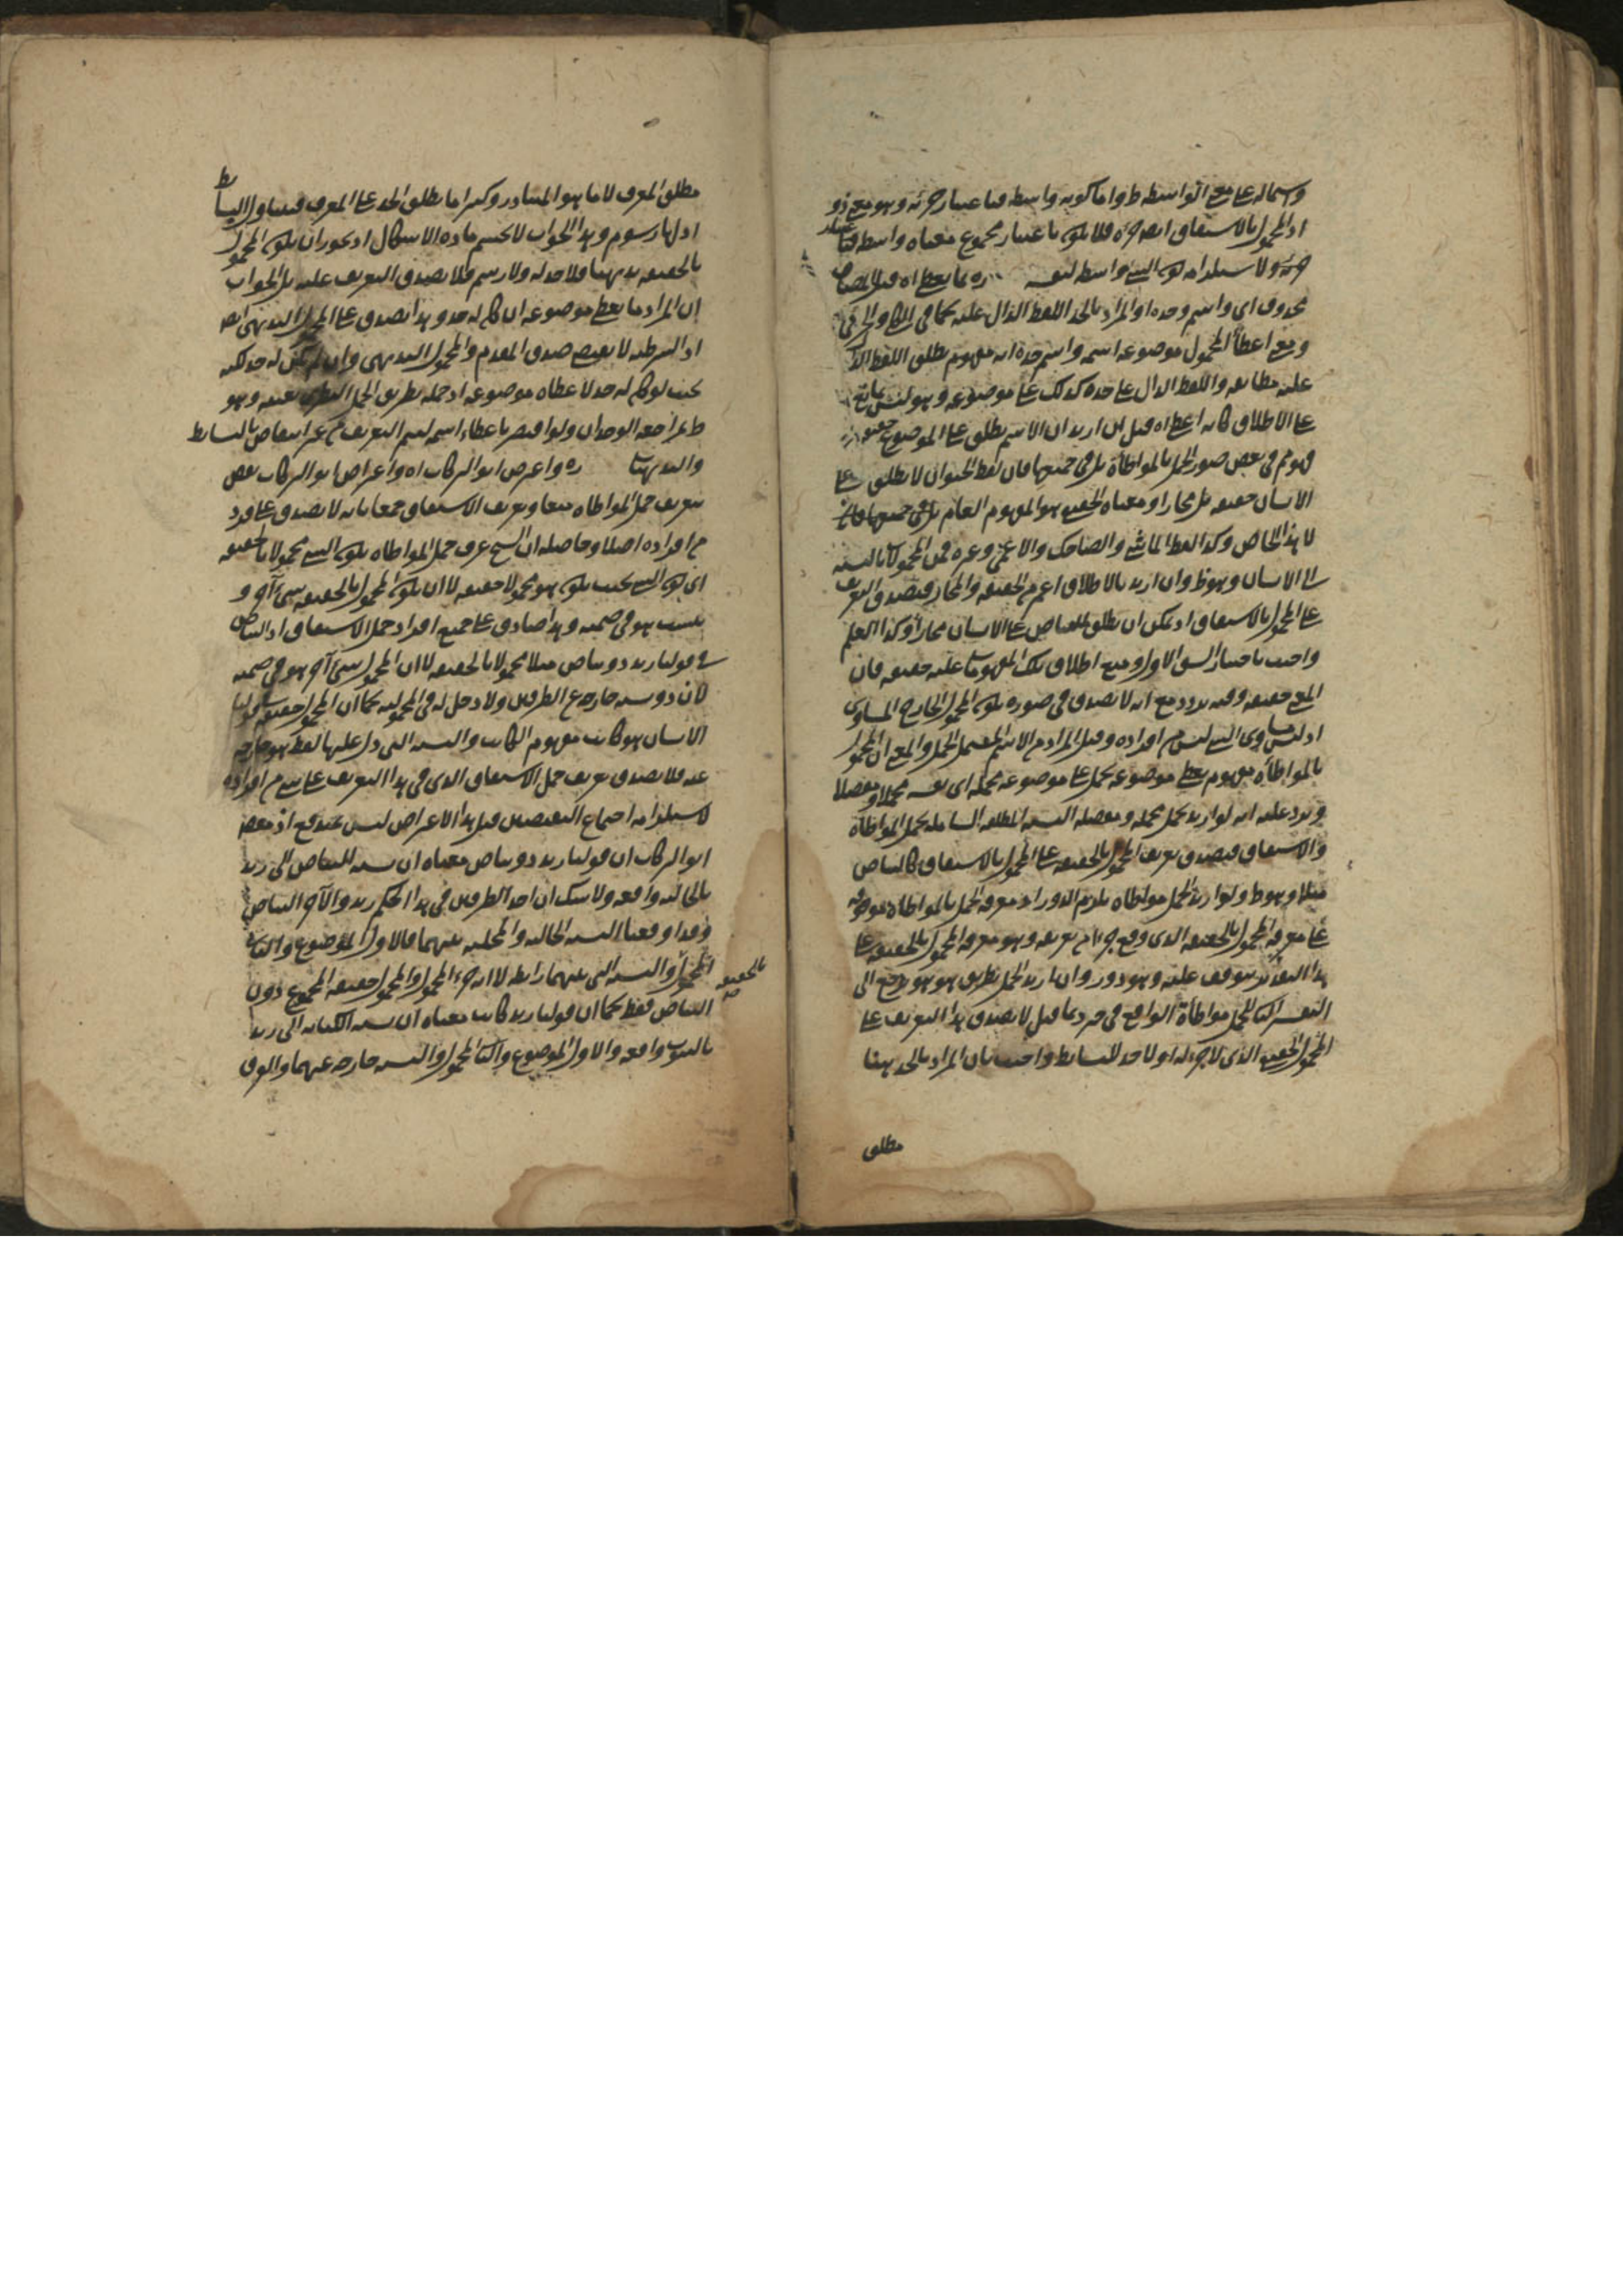 واشتماله على معنى الواسطة ظ واما كونه واسطة فباعتبار جزئه وهو معنى ذو
اذ المحمول بالاشتقاق ايضا جزء فلا يكون باعتبار مجموع معناه واسطة فباعتبار
جزئه ولا استلزامه كون الشيء واسطة لنفسه بما يعطى اه قيل المضاف
محذوف اى واسم وحده او المراد بالحد اللفظ الدال عليه كما فى
ومعنى اعطاء المحمول موضوعه اسمه واسم حده انه مفهوم يطلق اللفظ الدال
عليه مطابقة واللفظ الدال على حده كذلك على موضوعه وهو ليس
على الاطلاق كانه اعطاه قيل ان اريد ان الاسم يطلق على الموضوع حقيقة
فهو مم فى بعض صور الحمل بالمواطأة بل فى جميعها فان لفظ الحيوان لا يطلق على
الانسان حقيقة بل مجازا ومعناه الحقيقى هو المفهوم العام بل فى جميعها
لا هذا الخاص وكذا لفظ الماشى والضاحك والاعمى وغيره من المحمولات بالنسبة
الى الانسان وهو ظ وان اريد بالاطلاق اعم من الحقيقة والمجاز فيصدق التعريف
على المحمول بالاشتقاق اذ يمكن ان يطلق البياض على الانسان مجازا وكذا العلم
واجيب باختيار الشق الاول ومنع اطلاق تلك المفهومات عليه حقيقة فان
المنع حقيقة وفيه تردد مع انه لا يصدق فى صورة يكون المحمول الخارج المساوى
اذ ليس مساوى الشيء ليس من افراده وقيل المراد من الاسم المجمل والمعنى ان المحمول
بالمواطأة مفهوم يعطى موضوعه يحمل على موضوعه مجمله اى نفسه مجملا ومفصلا
ويرد عليه انه لو اريد بحمل مجمله ومفصله النسبة المطلقة الشاملة لحمل المواطأة
والاشتقاق فيصدق تعريف المحمول بالحقيقة على المحمول بالاشتقاق كالبياض
مثلا وهو ظ ولو اريد الحمل مواطاه يلزم الدور اذ معرفة الحمل بالمواطاه موقوفة
على معرفة المحمول بالحقيقة الذى وقع جزءا من تعريفه وهو معرفة المحمول بالحقيقة على
هذا التقدير يتوقف عليه وهو دور وان اريد الحمل بطريق هو هو يرجع الى
التفسير الثانى للحمل مواطأة الواقع فى خبر دبما قيل لا يصدق هذا التعريف على
المحمول الحقيقى الذى لا جزء له اذ لا حد للبسائط واجيب بان المراد بالحد ههنا
مطلق
مطلق المعرف لا ما هو المتبادر وكثيرا ما يطلق الحد على المعرف فيتناول البسائط
اذ لها رسوم وهذا الجواب لا يحسم مادة الاشكال اذ يجوز ان يكون المحمول
بالحقيقة بديهيا فلا حد له ولا رسم فلا يصدق التعريف عليه بل الجواب
ان المراد ما يعطى موضوعه ان كان له حد وهذا يصدق على المحمول البديهى ايضا
اذ الشرطية لا يقتضى صدق المقدم والمحمول البديهى وان لم يكن له حد لكنه
بحيث لو كان له حد لاعطاه موضوعه اذ حمله بطريق الحمل بعينه وهو
ظ بمراجعة الوجدان ولو اقتصر باعطاء اسمه لسلم التعريف من غير انتقاض بالبسائط
والبديهيات واعترض ابو البركات اه واعتراض ابو البركات نقض
تعريف حمل المواطاه منعا وتعريف الاشتقاق جمعا بانه لا يصدق على فرد
من افراده اصلا وحاصله ان الشيخ عرف حمل المواطاه بكون الشيء محمولا بالحقيقة
اى كون الشيء بحيث يكون هو محمولا حقيقة لا ان يكون المحمول بالحقيقة شيء آخر و
ينسب هو فى ضمنه وهذا صادق على جميع افراد حمل الاشتقاق اذ البياض
فى قولنا زيد ذو بياض مثلا محمولا بالحقيقة لا ان المحمول شيء آخر هو فى ضمنه
لان ذو نسبة خارجة عن الطرفين ولا دخل له فى المحمولية كما ان المحمول حقيقة فى قولنا
الانسان هو كاتب مفهوم الكاتب والنسبة التى دل عليها لفظ هو خارجة
عنه فلا يصدق تعريف حمل الاشتقاق الذى فى هذا التعريف على شيء من افراده
لاستلزامه اجتماع النقيضين قيل هذا الاعتراض ليس بمندفع اذ مقصود
ابو البركات ان قولنا زيد ذو بياض معناه ان نسبة البياض الى زيد
بالحالية واقعة ولا شك ان احد الطرفين فى هذا الحكم زيد والآخر البياض
وقد اوقعنا النسبة الحالية والمحلية بينهما فالاول الموضوع والثانى
المحمول والنسبة التى بينهما رابطة لا انه جزء المحمول والمحمول حقيقة المجموع دون
بالحقيقة
البياض فقط كما ان قولنا زيد كاتب معناه ان نسبة الكتابة الى زيد
بالثبوت واقعة والاول الموضوع والثانى المحمول والنسبة خارجة عنهما والفرق